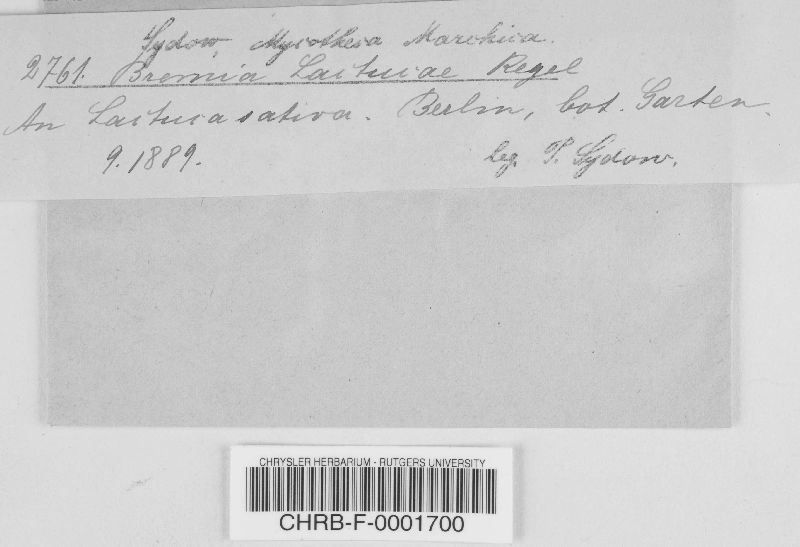 Sydow, Mycotheca Marchica.
2761. Bremia Lactucae Regel
An Lactuca sativa. Berlin, bot. Garten.
9. 1889. leg. P. Sydow.
CHRYSLER HERBARIUM - RUTGERS UNIVERSITY
CHRB-F-0001700